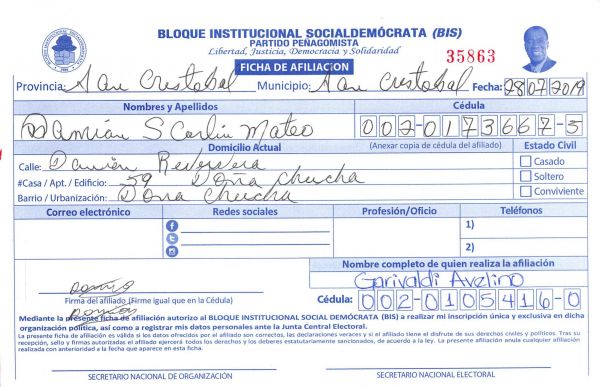 BLOQUE INSTITUCIONAL SOCIALDEMÓCRATA (BIS)
PARTIDO PEÑAGOMISTA
Libertad, Justicia, Democracia y Solidaridad
35863
FICHA DE AFILIACIÓN
Provincia: San Cristobal Municipio: San Cristobal Fecha: 28072019
Nombres y Apellidos Cédula
Damián S Carlin Mateo 002-0173667-5
Domicilio Actual (Anexar copia de cédula del afiliado) Estado Civil
Calle: Casado
#Casa / Apt. / Edificio: 59 Doña Chucha Soltero
Barrio / Urbanización: Doña Chucha Conviviente
Correo electrónico Redes sociales Profesión/Oficio Teléfonos
1)
2)
Nombre completo de quien realiza la afiliación
Garivaldi Avelino
Firma del afiliado (Firme igual que en la Cédula) Cédula: 002-0105416-0
Mediante la presente ficha de afiliación autorizo al BLOQUE INSTITUCIONAL SOCIAL DEMÓCRATA (BIS) a realizar mi inscripción única y exclusiva en dicha
organización política, así como a registrar mis datos personales ante la Junta Central Electoral.
La presente ficha de afiliación es válida si los datos ofrecidos por el afiliado son correctos, las declaraciones veraces y si el afiliado tiene el disfrute de sus derechos civiles y políticos. Tras su
recepción, sello y firmas autorizadas el afiliado ejercerá todos los derechos y los deberes estatutariamente sancionados, de acuerdo a la ley. La presente afiliación anula cualquier afiliación
realizada con anterioridad a la fecha que aparece en esta ficha.
SECRETARIO NACIONAL DE ORGANIZACIÓN SECRETARIO NACIONAL ELECTORAL